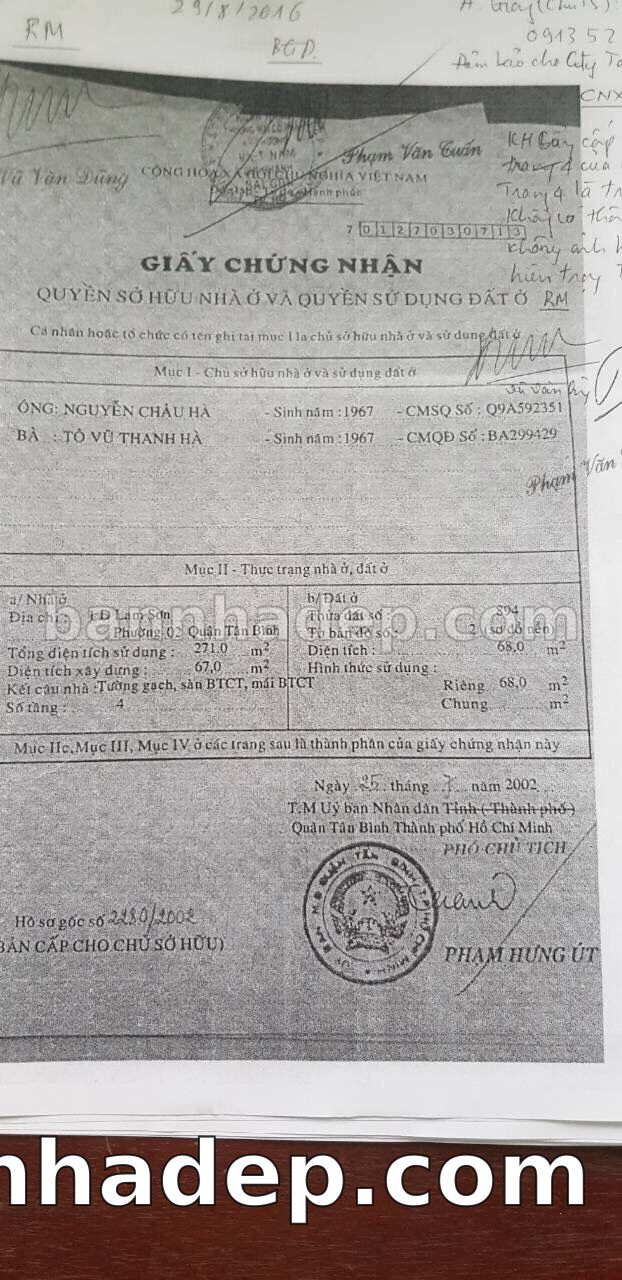 29/8/2016
RM
BGD.
0913 52
Đảm bảo cho Cty
CNX
Phạm Văn Tuấn
Vũ Văn Dũng
CỘNG HÒA XÃ HỘI CHỦ NGHĨA VIỆT NAM
KH
cấp
trang 4 của
Trang 4 là
không
hiện trạng
7 0127030713
GIẤY CHỨNG NHẬN
QUYỀN SỞ HỮU NHÀ Ở VÀ QUYỀN SỬ DỤNG ĐẤT Ở RM
Cá nhân hoặc tổ chức có tên ghi tại mục I là chủ sở hữu nhà ở và sử dụng đất ở
Mục I - Chủ sở hữu nhà ở và sử dụng đất ở
ÔNG: NGUYỄN CHÂU HÀ - Sinh năm : 1967 - CMSQ Số : Q9A592351
BÀ : TÔ VŨ THANH HÀ - Sinh năm : 1967 - CMQĐ Số :BA299429
Phạm Văn
Mục II - Thực trạng nhà ở, đất ở
a/ Nhà ở
Địa chỉ : 1 D Lam Sơn
Phường 02 Quận Tân Bình
Tổng diện tích sử dụng : 271.0 m²
Diện tích xây dựng : 67,0 m²
Kết cấu nhà :Tường gạch, sàn BTCT, mái BTCT
Số tầng : 4
b/ Đất ở
Thửa đất số : 894
Tờ bản đồ số : 2 sơ đồ nền
Diện tích : 68,0 m²
Hình thức sử dụng :
Riêng 68,0 m²
Chung m²
bannhadep.com
Mục IIc,Mục III, Mục IV ở các trang sau là thành phần của giấy chứng nhận này
Ngày 25 tháng 7 năm 2002
T.M Uỷ ban Nhân dân Tỉnh (Thành phố)
Quận Tân Bình Thành phố Hồ Chí Minh
PHÓ CHỦ TỊCH
Hồ sơ gốc số 2280/2002
BẢN CẤP CHO CHỦ SỞ HỮU)
PHẠM HƯNG ÚT
nhadep.com